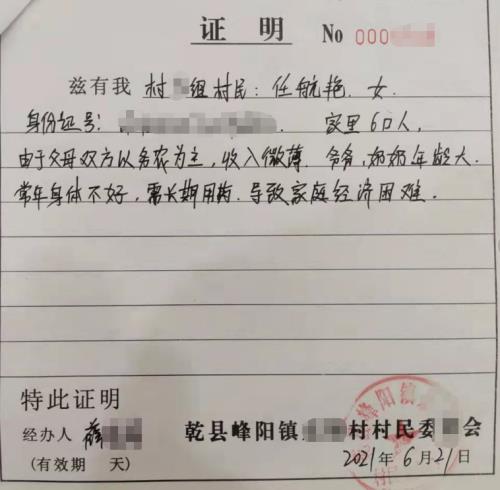 证 明 No 000
兹有我 村 组村民：任航艳. 女.
身份证号： . 家里6口人,
由于父母双方以务农为主, 收入微薄. 爷爷, 奶奶年龄大.
常年身体不好, 需长期用药. 导致家庭经济困难.
特此证明
经办人 薛
乾县峰阳镇 村村民委 会
(有效期 天)
2021年6月21日
峰阳镇